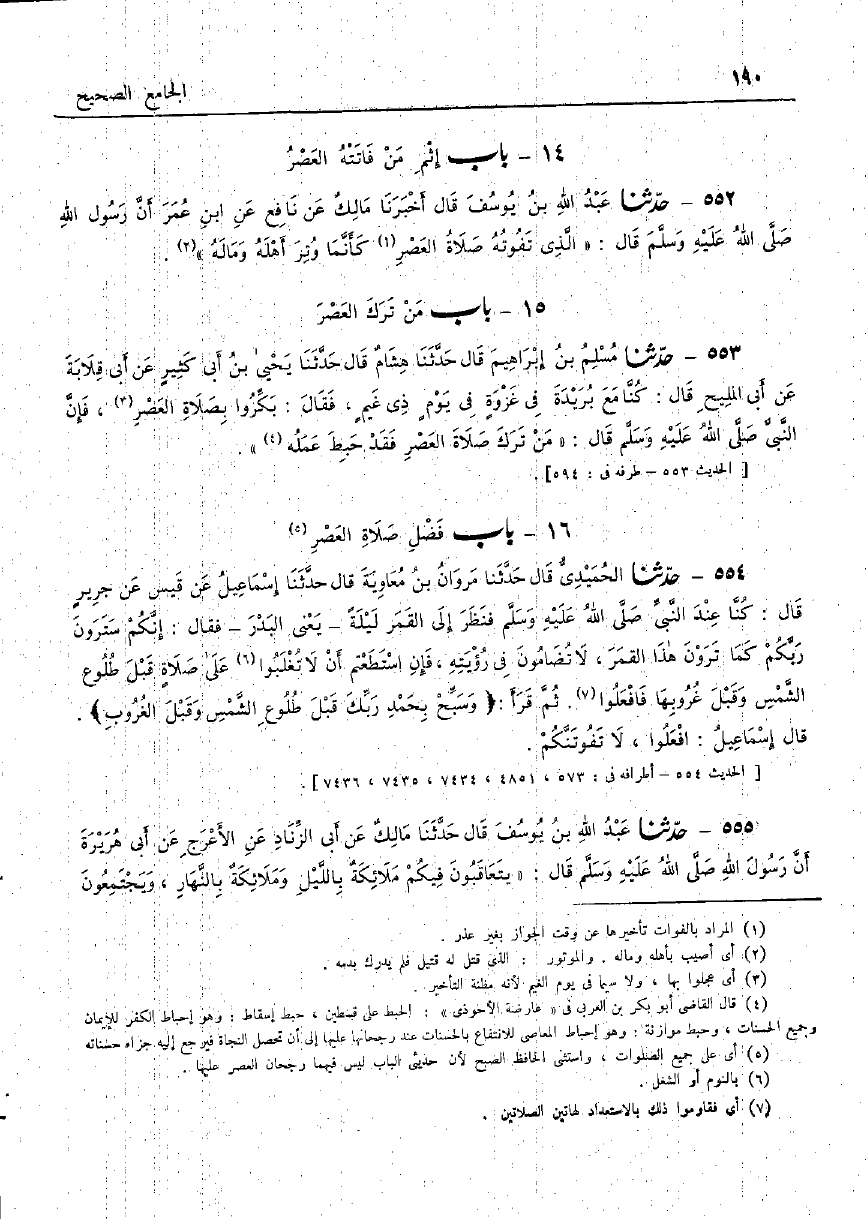 ١٩٠
الجامع الصحيح
١٤ - باب إِثْمِ مَنْ فَاتَتْهُ العَصْرُ
٥٥٢ - حدّثنا عَبْدُ اللهِ بنُ يُوسُفَ قَال أَخْبَرَنَا مَالِكٌ عَن نَافِعٍ عَنِ ابنِ عُمَرَ أَنَّ رَسُول اللهِ
صَلَّى اللهُ عَلَيْهِ وَسَلَّمَ قَال : « الَّذِى تَفُوتُهُ صَلَاةُ العَصْرِ(١) كَأَنَّمَا وُتِرَ أَهْلَهُ وَمَالَهُ »(٢) .
١٥ - باب مَنْ تَرَكَ العَصْرَ
٥٥٣ - حدّثنا مُسْلِمُ بنُ إِبْرَاهِيمَ قَال حَدَّثَنَا هِشَامٌ قَال حَدَّثَنَا يَحْيىٰ بنُ أَبى كَثِيرٍ عَن أَبى قِلَابَةَ
عَن أَبى المَلِيحِ قَال : كُنَّا مَعَ بُرَيْدَةَ فِى غَزْوَةٍ فِى يَوْمٍ ذِى غَيمٍ ، فَقَالَ : بَكِّرُوا بِصَلَاةِ العَصْرِ(٣) ، فَإِنَّ
النَّبىَّ صَلَّى اللهُ عَلَيْهِ وَسَلَّم قَال : « مَنْ تَرَكَ صَلَاةَ العَصْرِ فَقَدْ حَبِطَ عَمَلُه(٤) » .
[ الحديث ٥٥٣ - طرفه فى : ٥٩٤] .
١٦ - باب فَضْلِ صَلَاةِ العَصْرِ(٥)
٥٥٤ - حدّثنا الحُمَيْدِىُّ قَال حَدَّثَنا مَروَانُ بنُ مُعَاوِيَةَ قال حدَّثَنَا إِسْمَاعِيلُ عَن قَيسٍ عَن جَرِيرٍ
قَال : كُنَّا عِنْدَ النَّبىِّ صَلَّى اللهُ عَلَيْهِ وَسَلَّم فنَظَرَ إِلَى القَمَرِ لَيْلَةً - يَعْنى البَدْرَ - فقال : إِنَّكُمْ سَتَرَونَ
رَبَّكُمْ كَمَا تَرَوْنَ هٰذَا القمَرَ ، لَا تُضَامُونَ فِى رُؤْيَتِهِ ، فَإِنِ اسْتَطَعْتم أَنْ لَا تُغْلَبُوا(٦) عَلَىٰ صَلَاةٍ قَبْلَ طُلُوعِ
الشَّمْسِ وَقَبْلَ غُرُوبِهَا فَافْعَلُوا(٧) . ثُمَّ قَرَأَ :﴿ وَسَبِّحْ بِحَمْدِ رَبِّكَ قَبْلَ طُلُوعِ الشَّمْسِ وَقَبْلَ الغُرُوبِ﴾ .
قال إِسْمَاعِيلُ : افْعَلُوا ، لَا تَفُوتَنَّكُمْ .
[ الحديث ٥٥٤ - أطرافه فى : ٥٧٣ ، ٤٨٥١ ، ٧٤٣٤ ، ٧٤٣٥ ، ٧٤٣٦] .
٥٥٥ - حدّثنا عَبْدُ اللهِ بنُ يُوسُفَ قَال حَدَّثَنَا مَالِكٌ عَن أَبى الزِّنَادِ عَنِ الأَعْرَجِ عَن أَبى هُرَيْرَةَ
أَنَّ رَسُولَ اللهِ صَلَّى اللهُ عَلَيْهِ وَسَلَّم قَال : « يتَعَاقَبُونَ فِيكُمْ مَلَائِكَةٌ بِاللَّيْلِ وَمَلَائِكَةٌ بِالنَّهَارِ ، وَيَجْتَمِعُونَ
(١) المراد بالفوات تأخيرها عن وقت الجواز بغير عذر .
(٢) أى أصيب بأهله وماله . والموتور : الذى قتل له قتيل فلم يدرك بدمه .
(٣) أى عجلوا بها ، ولا سيما فى يوم الغيم لأنه مظنة التأخير .
(٤) قال القاضى أبو بكر بن العربى فى « عارضة الأحوذى » : الحبط على قسطين ، حبط إسقاط : وهو إحباط الكفر للإيمان
وجميع الحسنات ، وحبط موازنة : وهو إحباط المعاصى للانتفاع بالحسنات عند رجحانها عليها إلى أن تحصل النجاة فيرجع إليه جزاء حسناته
(٥) أى على جميع الصلوات ، واستثنى الحافظ الصبح لأن حديثى الباب ليس فيهما رجحان العصر عليها .
(٦) بالنوم أو الشغل .
(٧) أي فقاوموا ذلك بالاستعداد لهاتين الصلاتين .